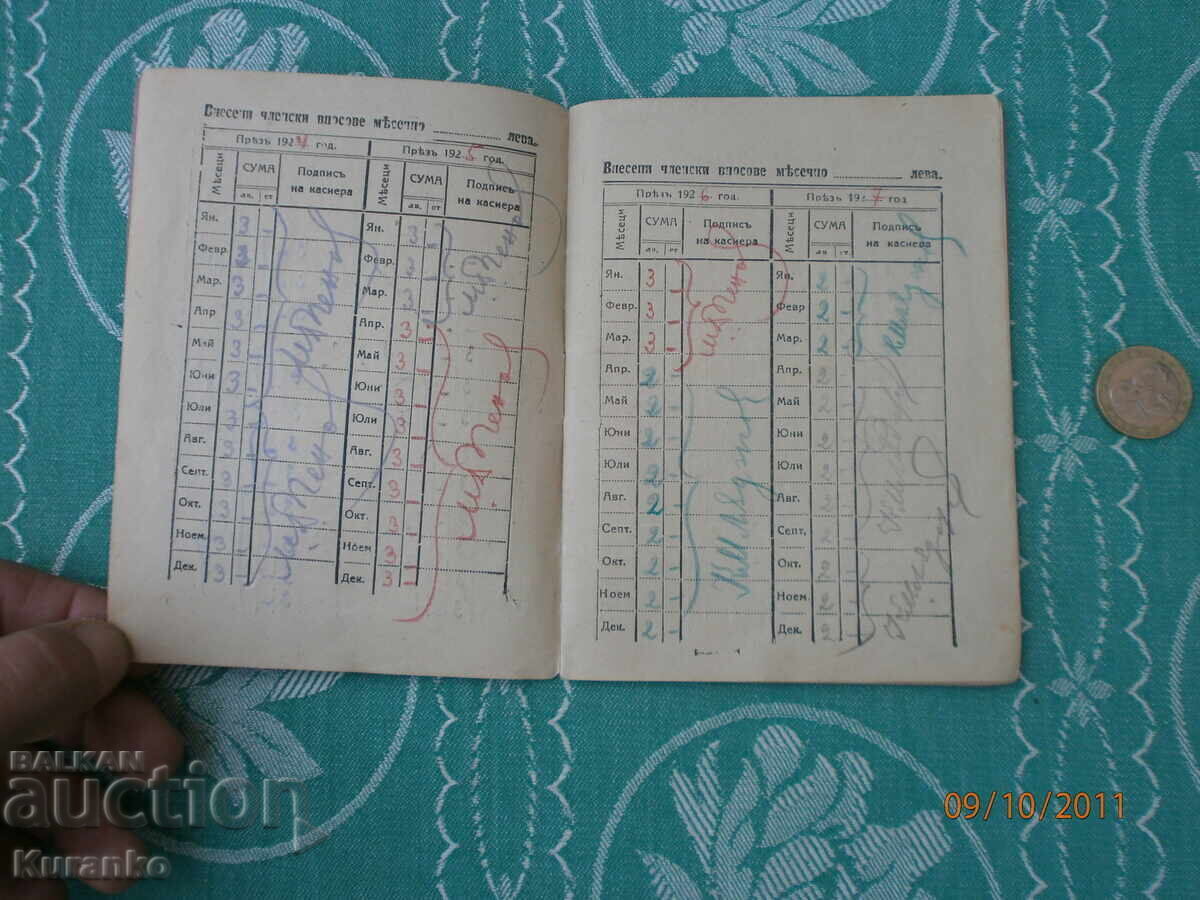 Внесени членски вносове мѣсечно ......... лева.
Прѣзъ 1924 год. Прѣзъ 1925 год.
Мѣсеци СУМА Подпись на касиера Мѣсеци СУМА Подпись на касиера
лв. ст лв. ст
Ян. 3 - Ян. 3 -
Февр. 3 - Февр. 3 -
Мар. 3 - Мар. 3 -
Апр 3 - Апр. 3 -
Май 3 - Май 3 -
Юни 3 - Юни 3 -
Юли 3 - Юли 3 -
Авг. 3 - Авг. 3 -
Септ. 3 - Септ. 3 -
Окт. 3 - Окт. 3 -
Ноем. 3 - Ноем. 3 -
Дек. 3 - Дек. 3 -
Внесени членски вносове мѣсечно ......... лева.
Прѣзъ 1926 год. Прѣзъ 1927 год
Мѣсеци СУМА Подпись на касиера Мѣсеци СУМА Подпись на касиера
лв. ст лв. ст.
Ян. 3 - Ян. 2 -
Февр. 3 - Февр 2 -
Мар. 3 - Мар. 2 -
Апр. 2 - Апр. 2 -
Май 2 - Май 2 -
Юни 2 - Юни 2 -
Юли 2 - Юли 2 -
Авг. 2 - Авг. 2 -
Септ. 2 - Септ. 2 -
Окт. 2 - Окт.
Ноем 2 - Ноем. 2 -
Дек. 2 - Дек. 2 -
09/10/2011
BALKAN
auction
Kuranko